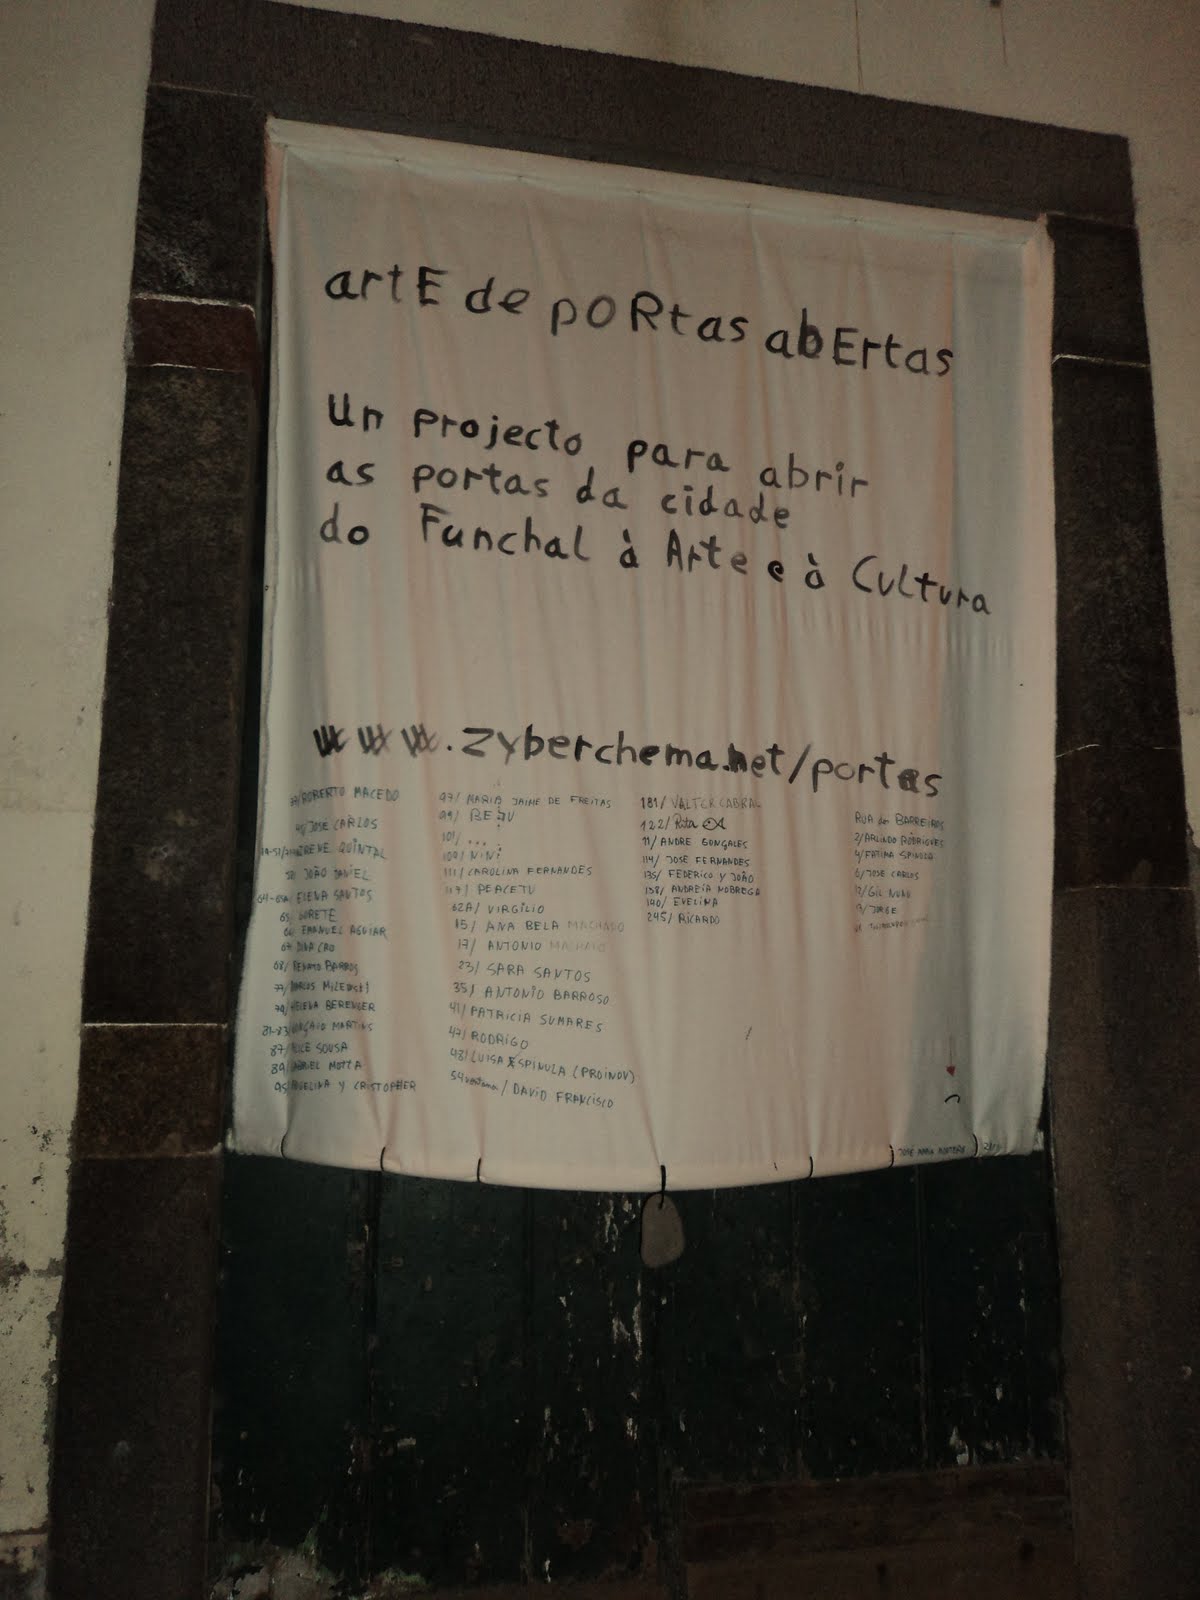 artE de pORtas abErtas
Un projecto para abrir
as portas da cidade
do Funchal à Arte e à Cultura
www.zyberchema.net/portas
ROBERTO MACEDO
JOSÉ CARLOS
IRENE QUINTAL
JOÃO DANIEL
ELENA SANTOS
LORETE
EMANUEL AGUIAR
67
68/ RENATO BARROS
77/
79/ HELENA BERENGER
81-83 GONÇALO MARTINS
87/ SOUSA
89/ MOTTA
95/ AVELINA Y CRISTOPHER
97/ MARIA JAIME DE FREITAS
99/ BEJU
101/ ...
109/ NINÍ
111/ CAROLINA FERNANDES
117/ PEACETU
62A/ VIRGÍLIO
15/ ANA BELA MACHADO
17/ ANTONIO MACHADO
23/ SARA SANTOS
35/ ANTONIO BARROSO
41/ PATRICIA SUMARES
47/ RODRIGO
48/ LUISA ESPINULA (PROINOV)
54 / DAVID FRANCISCO
181/ VALTER CABRAL
122/ Rita
11/ ANDRE GONÇALES
114/ JOSÉ FERNANDES
135/ FEDERICO Y JOÃO
138/ ANDREIA NOBREGA
190/ EVELINA
245/ RICARDO
RUA dos BARREIROS
2/ ARLINDO RODRIGUES
4/ FATIMA SPINOLA
6/ JOSE CARLOS
12/ GIL NUNO
JORGE
JOSÉ